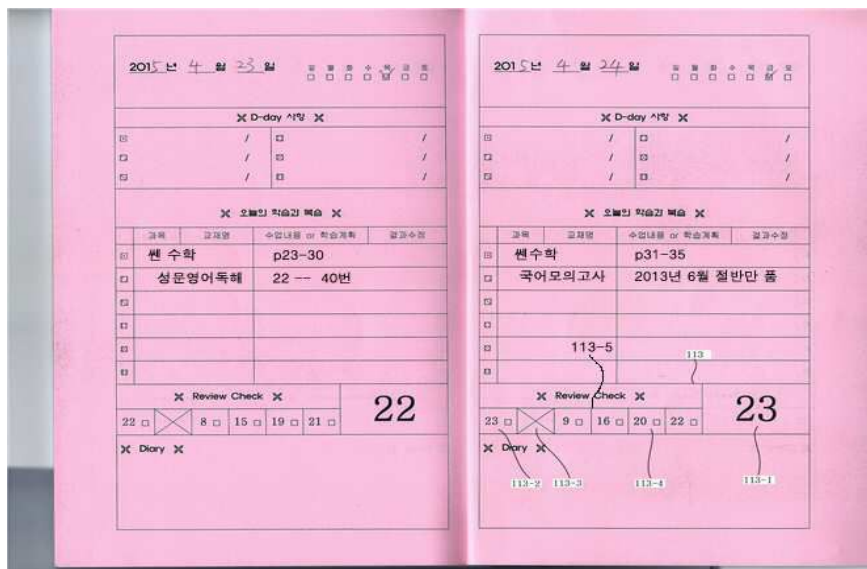 2015년 4월 23일
일 월 화 수 목 금 토
D-day 사항
/ /
/ /
/ /
오늘의 학습과 복습
과목 교재명 수업내용 or 학습계획 결과수정
쎈 수학 p23-30
성문영어독해 22 -- 40번
Review Check
22
22 8 15 19 21
Diary
2015년 4월 24일
일 월 화 수 목 금 토
D-day 사항
/ /
/ /
/ /
오늘의 학습과 복습
과목 교재명 수업내용 or 학습계획 결과수정
쎈수학 p31-35
국어모의고사 2013년 6월 절반만 품
113-5
113
Review Check
23
23 9 16 20 22
Diary
113-2 113-3 113-4 113-1